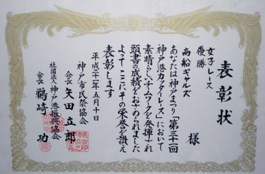 表彰状
女子レース
優勝
高船ギャルズ 様
あなたは神戸まつり「第三十一回
神戸港カッターレース」において
素晴らしいチームワークを発揮され
頭書の成績をおさめられました
よってここにその栄誉を讃え
表彰します
平成二十一年五月十日
神戸市民祭協会
会長 矢田立郎
社団法人 神戸港振興協会
会長 鶴崎功